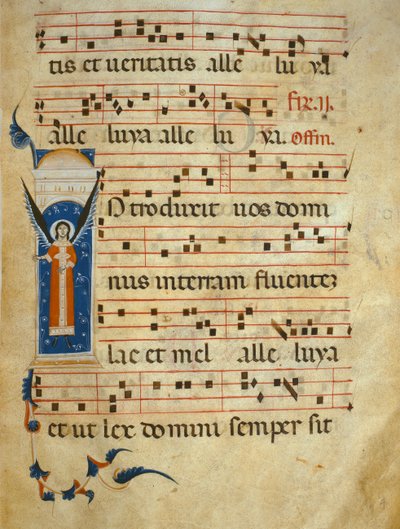 tis et ueritatis alle lu ya
fer.ij.
alle luya alle lu ya. Offm.
INtroduxit uos domi
nus in terram fluentez
lac et mel alle luya
et ut lex domini semper sit